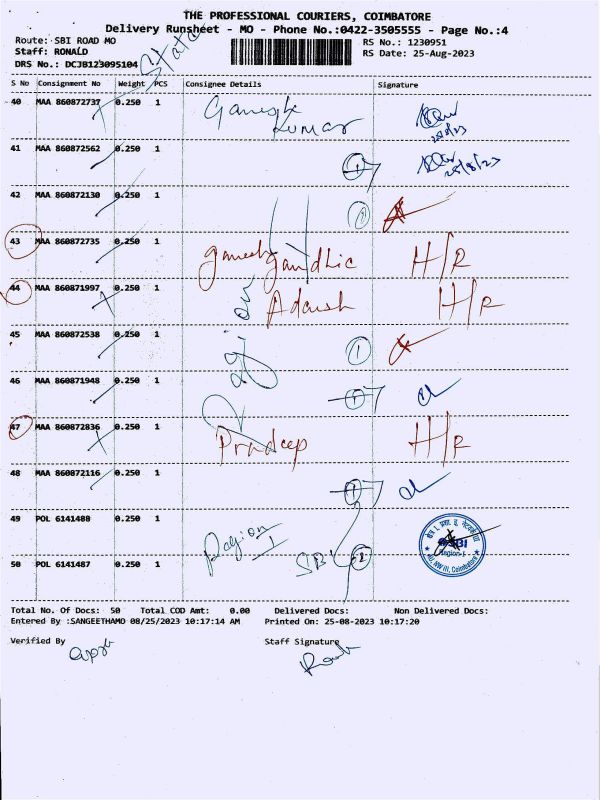 THE PROFESSIONAL COURIERS, COIMBATORE
Delivery Runsheet - MO - Phone No.:0422-3505555 - Page No.:4
Route: SBI ROAD MO
Staff: RONALD
DRS No.: DCJB123095104
RS No.: 1230951
RS Date: 25-Aug-2023
State
S No Consignment No Weight PCS Consignee Details Signature
40 MAA 860872737 0.250 1 Ganesh Kumar
25/8/23
41 MAA 860872562 0.250 1 25/8/23
42 MAA 860872130 0.250 1
43 MAA 860872735 0.250 1 Ganesh Gandhic H/R
44 MAA 860871997 0.250 1 Adarsh H/R
45 MAA 860872538 0.250 1 1
46 MAA 860871948 0.250 1
47 MAA 860872836 0.250 1 Pradeep H/R
48 MAA 860872116 0.250 1
49 POL 6141488 0.250 1 Region I
SBI Region-I
50 POL 6141487 0.250 1 SBI 2
AO, NW III, Coimbatore
Total No. Of Docs: 50 Total COD Amt: 0.00 Delivered Docs: Non Delivered Docs:
Entered By :SANGEETHAMO 08/25/2023 10:17:14 AM Printed On: 25-08-2023 10:17:20
Verified By Staff Signature